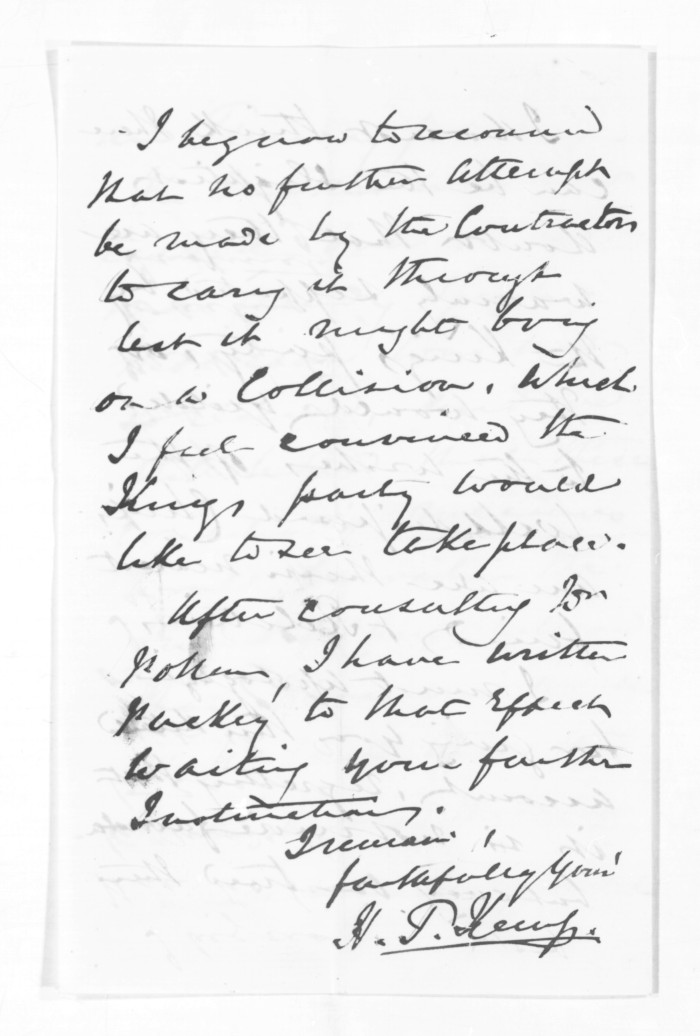 I beg now to recommend
that no further attempt
be made by the Contractors
to carry it through
lest it might bring
on a Collision, which
I feel convinced the
Kings party would
like to see take place.
After consulting Wm
I have written
to that Effect
Waiting your further
Instructions.
I remain,
faithfully Yours
H. T. Kemp.